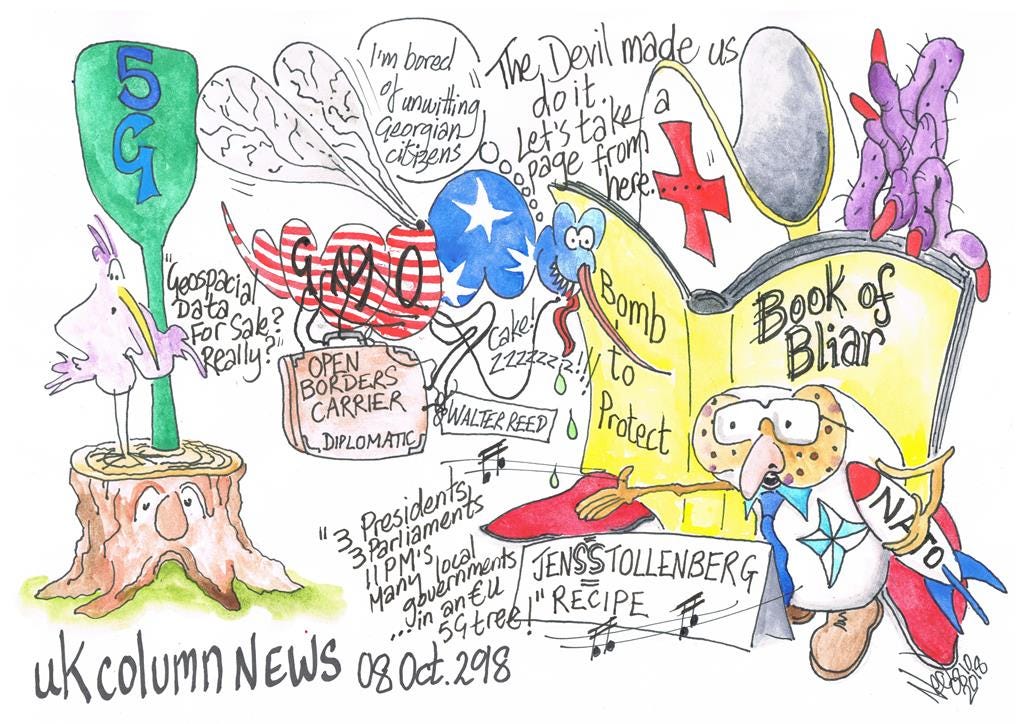 5G
I'm bored
of unwitting
Georgian
citizens
The Devil made us
do it.
Let's take a
page from
here....
"Geospacial
Data
For Sale?
Really?"
GMO
OPEN
BORDERS
CARRIER
DIPLOMATIC
Cake!
zzzzzzz!!
WALTER REED
Bomb
to
Protect
Book of
Bliar
NATO
"3 Presidents,
3 Parliaments
11 PM's
Many local
governments
...in an €U
5G tree!"
JENSSTOLLENBERG
RECIPE
UK COLUMN NEWS 08 Oct. 2018